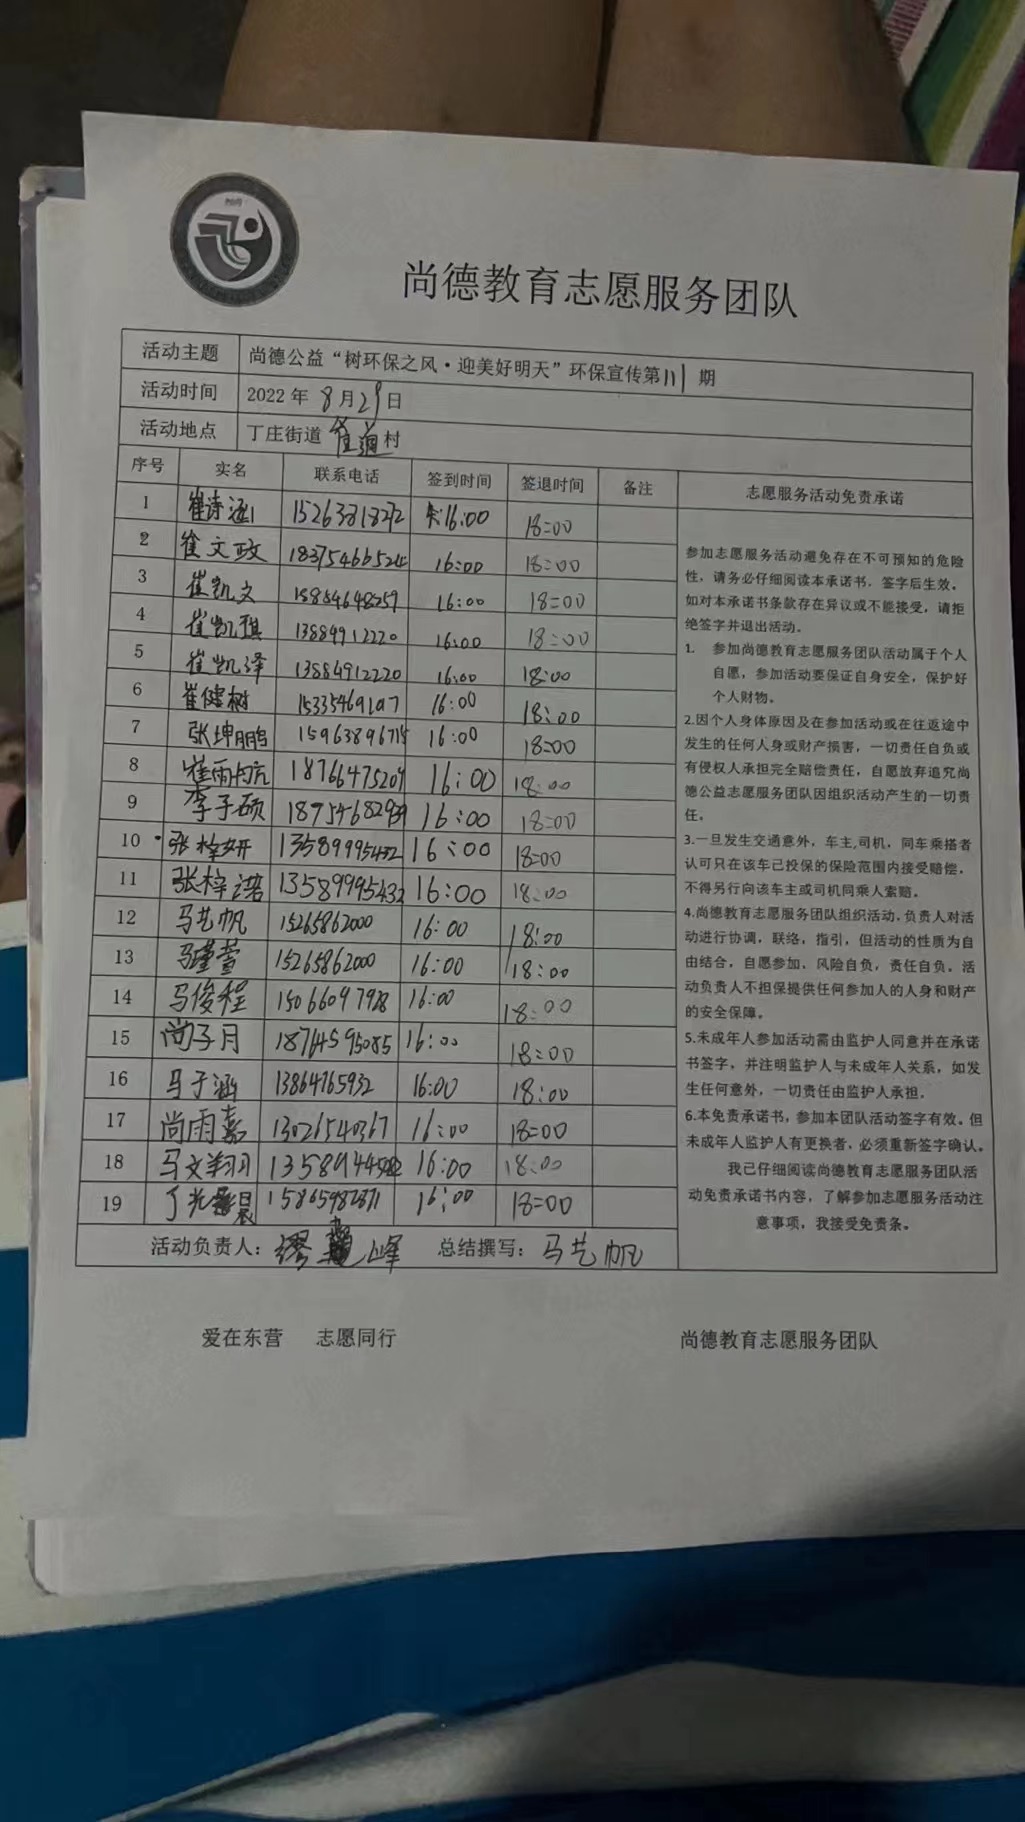 尚德教育志愿服务团队
活动主题 尚德公益“树环保之风·迎美好明天”环保宣传第111期
活动时间 2022年8月29日
活动地点 丁庄街道 村
序号 实名 联系电话 签到时间 签退时间 备注 志愿服务活动免责承诺
1 崔诗涵 15263818272 16:00 18:00
2 崔文政 16:00 18:00
3 崔凯文 16:00 18:00
4 崔凯琪 13889912220 16:00 18:00
5 崔凯泽 13884912220 16:00 18:00
6 崔健树 16:00 18:00
7 张坤鹏 16:00 18:00
8 崔雨航 18766475207 16:00 18:00
9 李子硕 16:00 18:00
10 张梓妍 13589995432 16:00 18:00
11 张梓诺 13589995432 16:00 18:00
12 马艺帆 15265862000 16:00 18:00
13 马瑾萱 15265862000 16:00 18:00
14 马俊程 15066097928 16:00 18:00
15 尚子月 18764595085 16:00 18:00
16 马子涵 13864765932 16:00 18:00
17 尚雨嘉 13026540367 16:00 18:00
18 马文翔 16:00 18:00
19 丁光晨 15865982871 16:00 18:00
活动负责人：缪 峰 总结撰写：马艺帆
参加志愿服务活动避免存在不可预知的危险
性，请务必仔细阅读本承诺书，签字后生效。
如对本承诺书条款存在异议或不能接受，请拒
绝签字并退出活动。
1. 参加尚德教育志愿服务团队活动属于个人
自愿，参加活动要保证自身安全，保护好
个人财物。
2.因个人身体原因及在参加活动或在往返途中
发生的任何人身或财产损害，一切责任自负或
有侵权人承担完全赔偿责任，自愿放弃追究尚
德公益志愿服务团队因组织活动产生的一切责
任。
3.一旦发生交通意外，车主,司机，同车乘搭者
认可只在该车已投保的保险范围内接受赔偿，
不得另行向该车主或司机同乘人索赔。
4.尚德教育志愿服务团队组织活动,负责人对活
动进行协调，联络，指引，但活动的性质为自
由结合，自愿参加，风险自负，责任自负。活
动负责人不担保提供任何参加人的人身和财产
的安全保障。
5.未成年人参加活动需由监护人同意并在承诺
书签字，并注明监护人与未成年人关系，如发
生任何意外，一切责任由监护人承担。
6.本免责承诺书，参加本团队活动签字有效。但
未成年人监护人有更换者，必须重新签字确认。
我已仔细阅读尚德教育志愿服务团队活
动免责承诺书内容，了解参加志愿服务活动注
意事项，我接受免责条。
爱在东营 志愿同行 尚德教育志愿服务团队